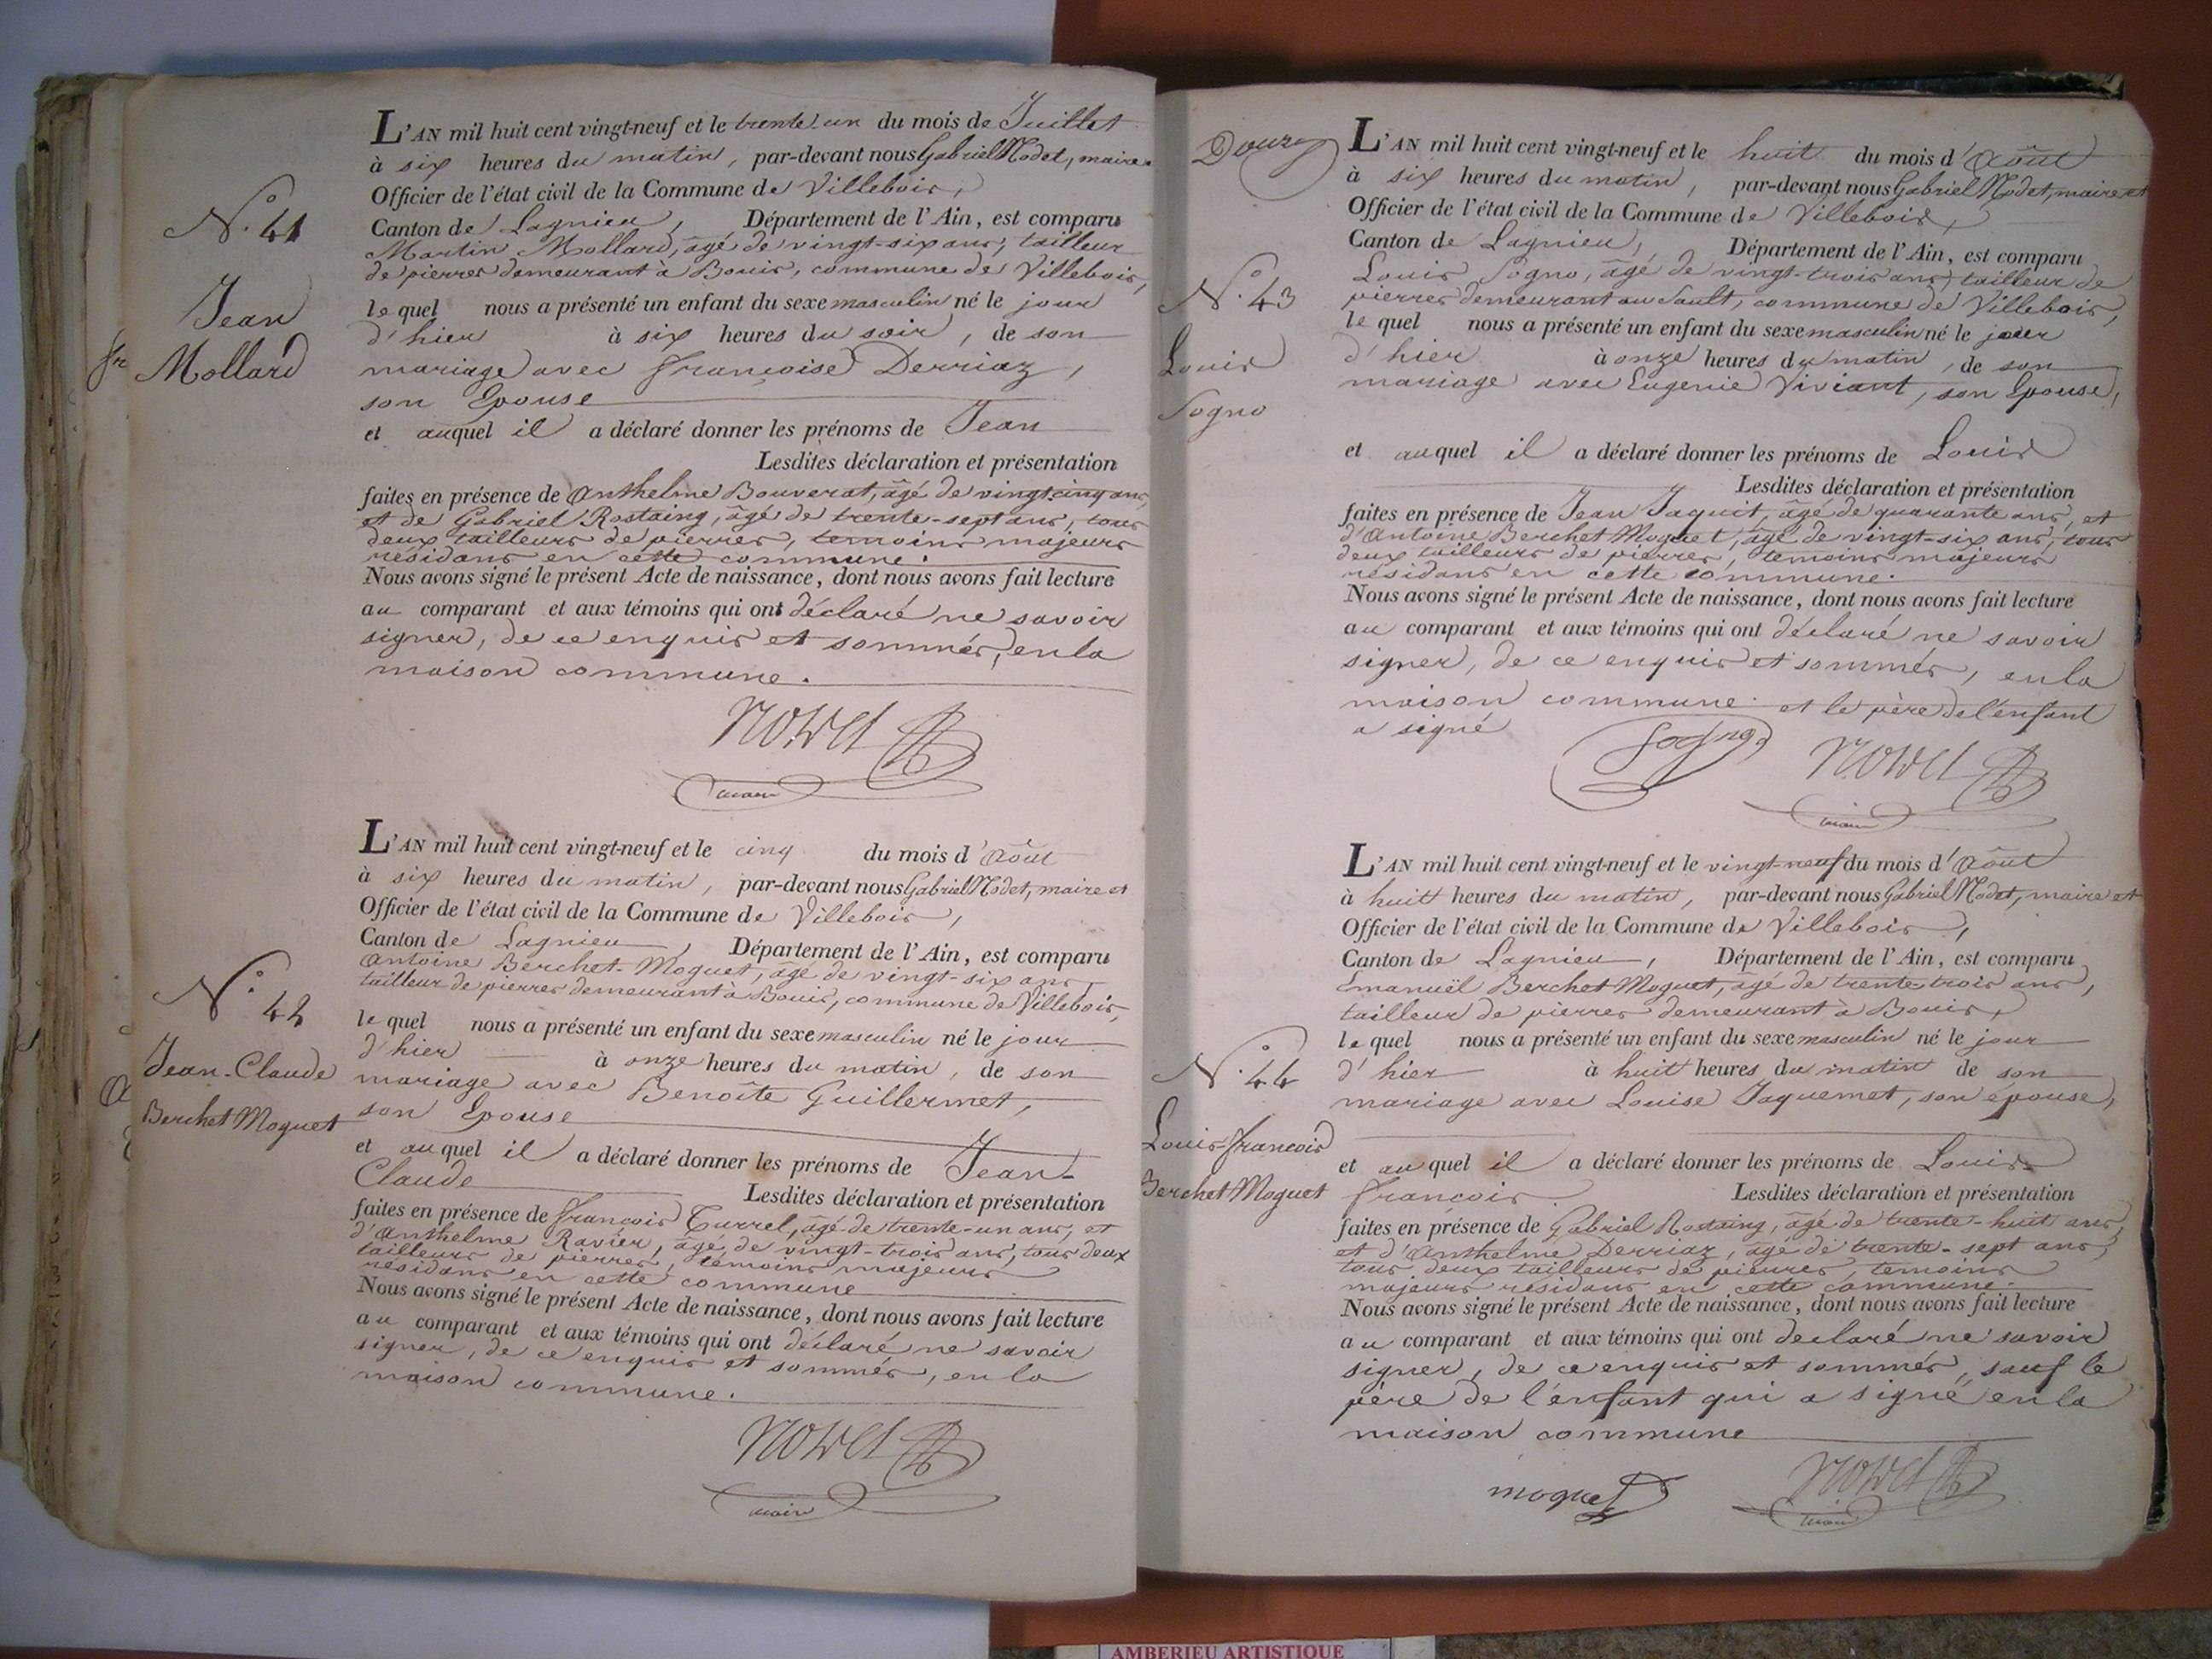 N.° 41
Jean
Mollard
L'AN mil huit cent vingt-neuf et le trente-un du mois de Juillet
à six heures du matin, par-devant nous Gabriel Nodet, maire
Officier de l'état civil de la Commune de Villebois,
Canton de Lagnieu, Département de l'Ain, est comparu
Martin Mollard, âgé de vingt-six ans, tailleur
de pierres demeurant à Bouis, commune de Villebois,
lequel nous a présenté un enfant du sexe masculin né le jour
d'hier à six heures du soir, de son
mariage avec françoise Derriaz,
son Epouse
et auquel il a déclaré donner les prénoms de Jean
Lesdites déclaration et présentation
faites en présence de Anthelme Bouverat, âgé de vingt-cinq ans,
et de Gabriel Rostaing, âgé de trente-sept ans, tous
deux tailleurs de pierres, temoins majeurs
résidans en cette commune.
Nous avons signé le présent Acte de naissance, dont nous avons fait lecture
au comparant et aux témoins qui ont déclaré ne savoir
signer, de ce enquis et sommés, en la
maison commune.
Nodet
maire
N.° 42
Jean-Claude
Berchet Moguet
L'AN mil huit cent vingt-neuf et le cinq du mois d'Août
à six heures du matin, par-devant nous Gabriel Nodet, maire et
Officier de l'état civil de la Commune de Villebois,
Canton de Lagnieu, Département de l'Ain, est comparu
Antoine Berchet-Moguet, âgé de vingt-six ans,
tailleur de pierres demeurant à Bouis, commune de Villebois,
lequel nous a présenté un enfant du sexe masculin né le jour
d'hier à onze heures du matin, de son
mariage avec Benoîte Guillermet,
son Epouse
et auquel il a déclaré donner les prénoms de Jean-
Claude Lesdites déclaration et présentation
faites en présence de françois Currel, âgé de trente-un ans, et
d'Anthelme Ravier, âgé de vingt-trois ans, tous deux
tailleurs de pierres, témoins majeurs
résidans en cette commune
Nous avons signé le présent Acte de naissance, dont nous avons fait lecture
au comparant et aux témoins qui ont déclaré ne savoir
signer, de ce enquis et sommés, en la
maison commune.
Nodet
maire
Douzy
N.° 43
Louis
Sogno
L'AN mil huit cent vingt-neuf et le huit du mois d'Août
à six heures du matin, par-devant nous Gabriel Nodet, maire et
Officier de l'état civil de la Commune de Villebois,
Canton de Lagnieu, Département de l'Ain, est comparu
Louis Sogno, âgé de vingt-trois ans, tailleur de
pierres demeurant au Sault, commune de Villebois,
lequel nous a présenté un enfant du sexe masculin né le jour
d'hier à onze heures du matin, de son
mariage avec Eugenie Viviant, son Epouse,
et auquel il a déclaré donner les prénoms de Louis
Lesdites déclaration et présentation
faites en présence de Jean Jaquit, âgé de quarante ans, et
d'Antoine Berchet Moguet, âgé de vingt-six ans, tous
deux tailleurs de pierres, témoins majeurs
résidans en cette commune.
Nous avons signé le présent Acte de naissance, dont nous avons fait lecture
au comparant et aux témoins qui ont déclaré ne savoir
signer, de ce enquis et sommés, en la
maison commune. et le père de l'enfant
a signé
Sogno Nodet
maire
N.° 44
Louis-françois
Berchet Moguet
L'AN mil huit cent vingt-neuf et le vingt-neuf du mois d'Août
à huit heures du matin, par-devant nous Gabriel Nodet, maire et
Officier de l'état civil de la Commune de Villebois,
Canton de Lagnieu, Département de l'Ain, est comparu
Emanuël Berchet Moguet, âgé de trente-trois ans,
tailleur de pierres demeurant à Bouis,
lequel nous a présenté un enfant du sexe masculin né le jour
d'hier à huit heures du matin de son
mariage avec Louise Jaquemet, son épouse,
et auquel il a déclaré donner les prénoms de Louis-
françois Lesdites déclaration et présentation
faites en présence de Gabriel Rostaing, âgé de trente-huit ans,
et d'Anthelme Derriaz, âgé de trente-sept ans,
tous deux tailleurs de pierres, temoins
majeurs résidans en cette commune.
Nous avons signé le présent Acte de naissance, dont nous avons fait lecture
au comparant et aux témoins qui ont declaré ne savoir
signer, de ce enquis et sommés, sauf le
père de l'enfant qui a signé, en la
maison commune
moguet Nodet
maire
AMBERIEU ARTISTIQUE